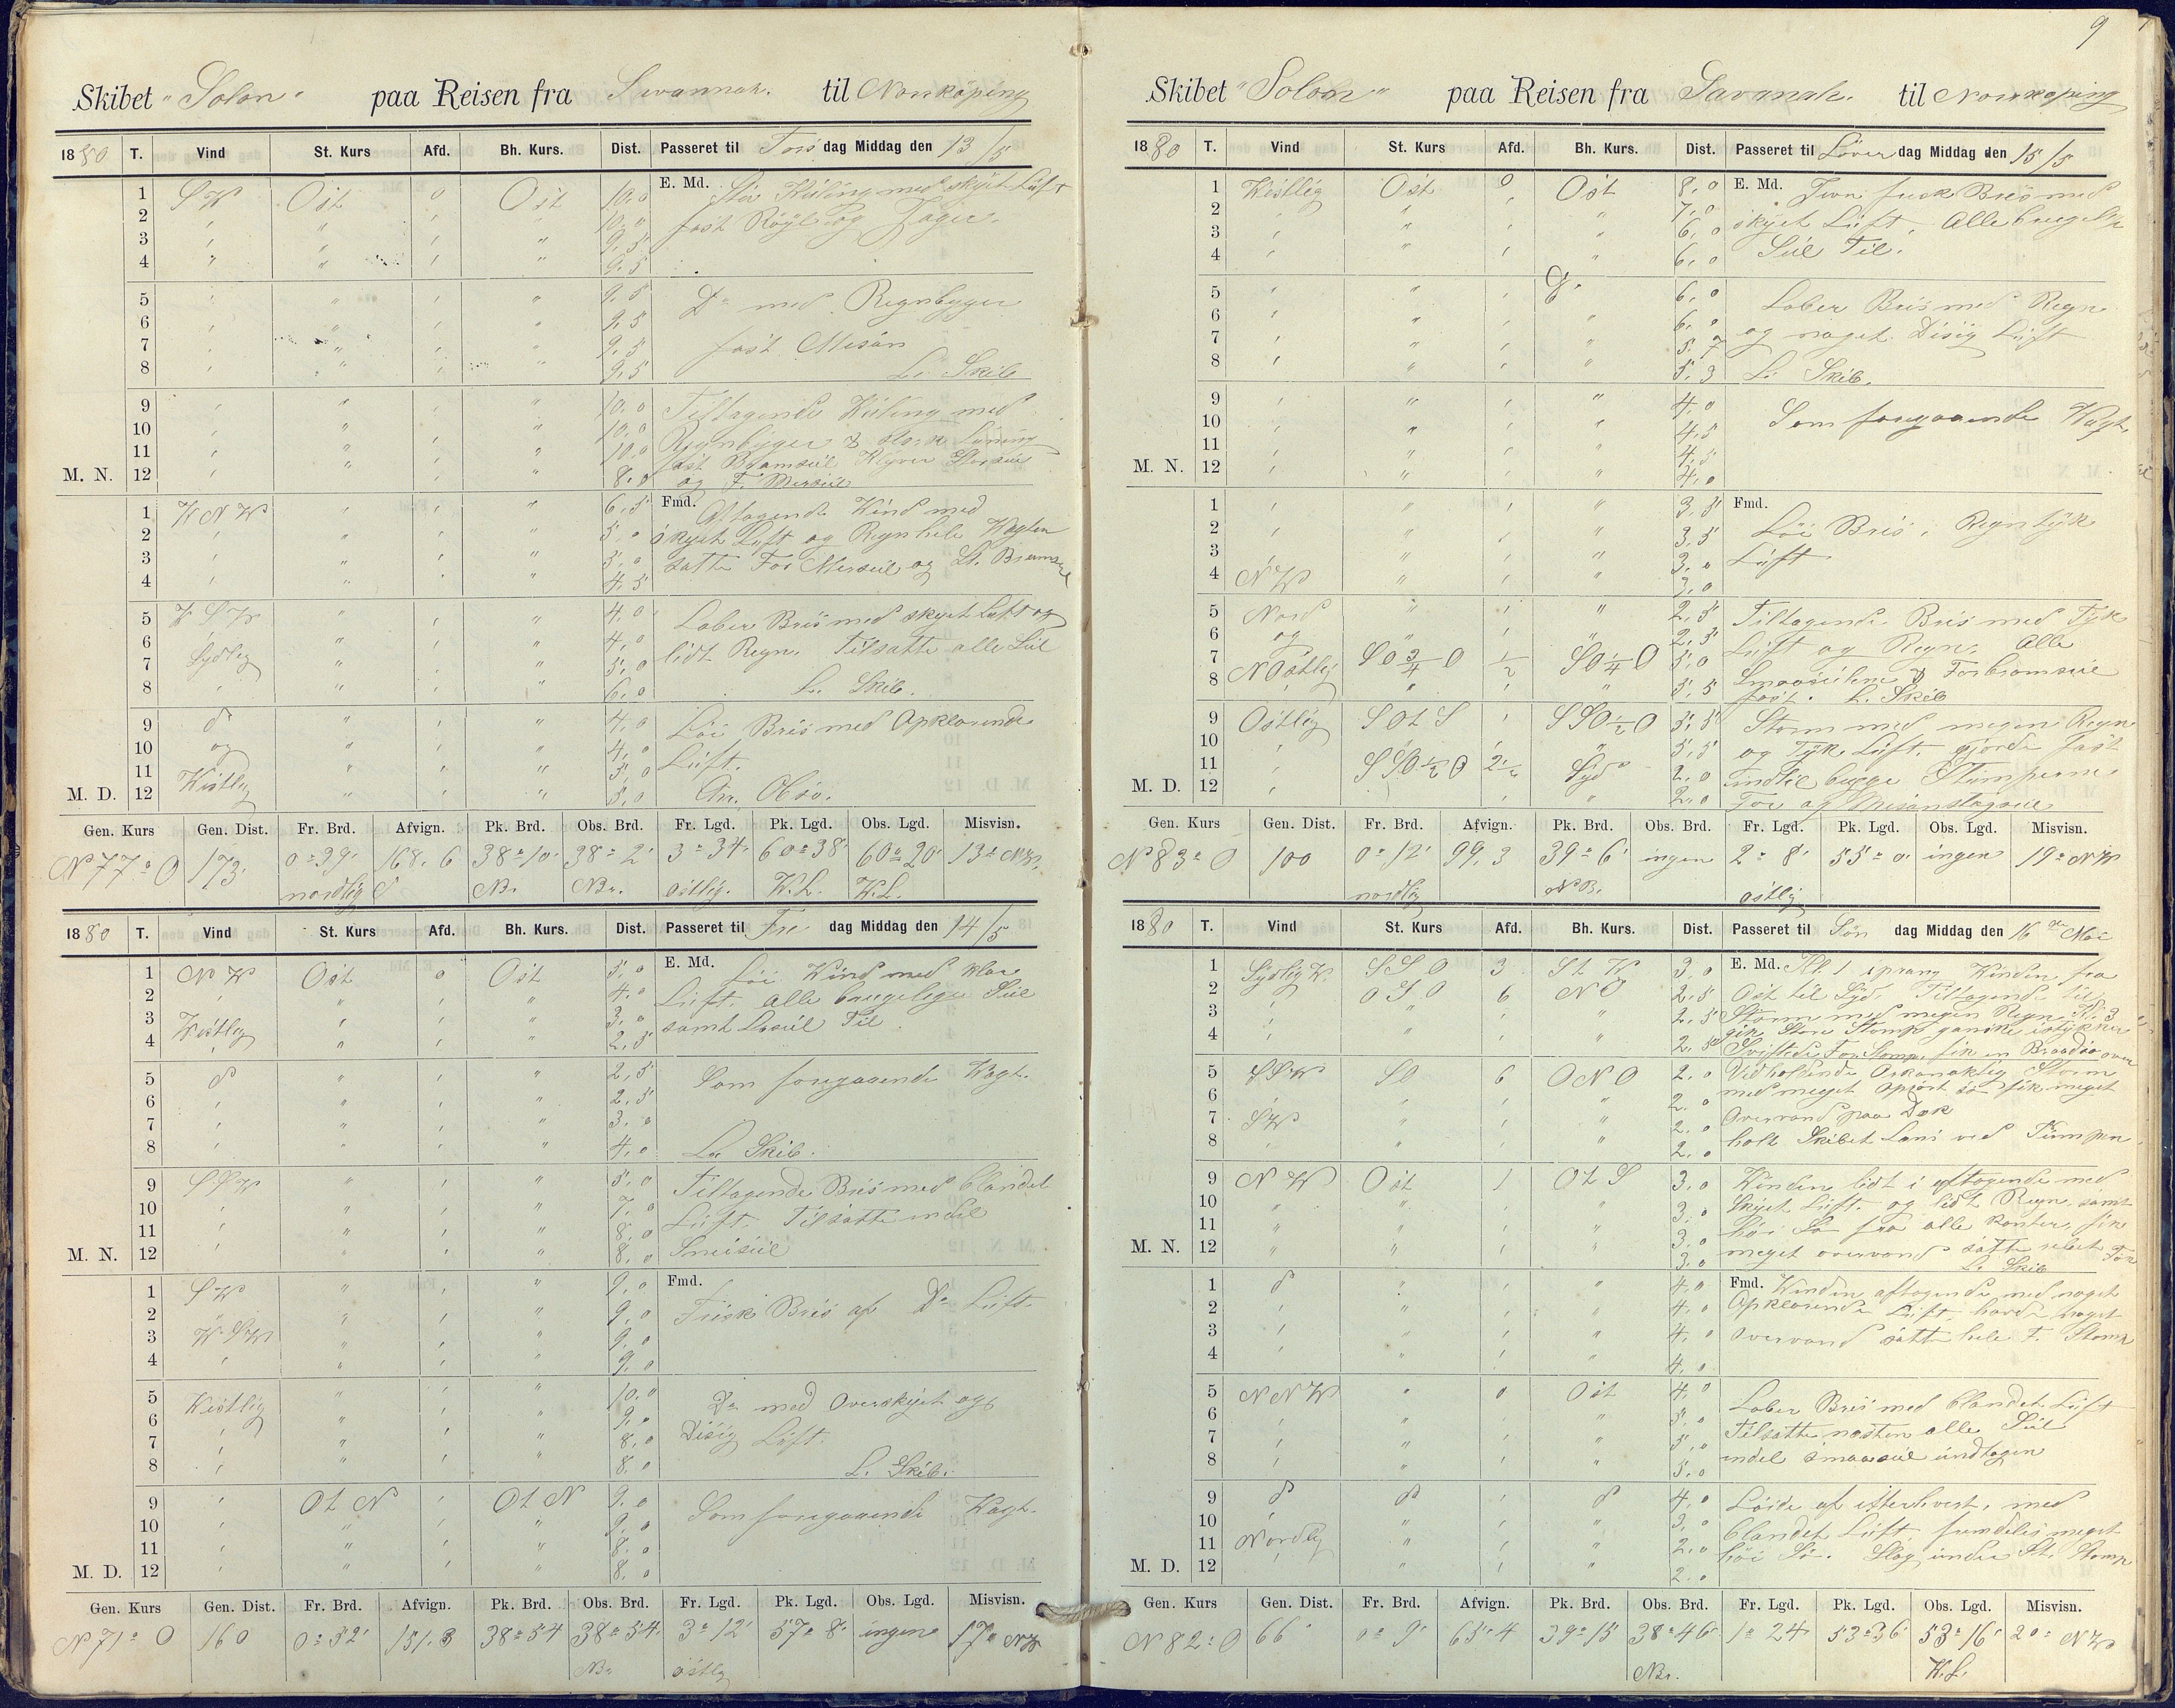 9
Skibet "Solon" paa Reisen fra Savannah. til Norrköping
1880 T. Vind St. Kurs Afd. Bh. Kurs. Dist. Passeret til Tors dag Middag den 13/5
1 SW Ost 0 Ost 10,0 E. Md. Stiv Kuling med skyet Luft
2 " " " " 10,0 fast Røyl og Jager.
3 " " " " 9,5
4 " " " " 9,5
5 " " " " 9,5 Do med Regnbyger
6 " " " " 9,5
7 " " " " 9,5 fast Mesan
8 " " " " 9,5 L. Skib
9 " " " " 10,0 Tiltagende Kuling med
10 " " " " 10,0 Regnbyger & Lyning
11 " " " " 10,0 fast Bramseil Klyver Storseil
M. N. 12 " " " " 8,0 og F. Merseil
1 WNW " " " 6,5 Fmd. Aftagende Vind med
2 " " " " 5,0 skyet Luft og Regn hele Vagten
3 " " " " 5,0 satte For Merseil og St. Bramseil
4 " " " " 4,5
5 WSW " " " 4,0 Laber Bris med skyet Luft og
6 " " " " 4,0 lidt Regn. Tilsatte alle Seil
7 Sydlig " " " 5,0
8 " " " " 6,0 L. Skib.
9 " " " 4,0 Løi Bris med Opklarende
10 og " " " 4,0 Luft.
11 Westlig " " " 5,0
M. D. 12 " " " 5,0 An. Obsv.
Gen. Kurs Gen. Dist. Fr. Brd. Afvign. Pk. Brd. Obs. Brd. Fr. Lgd. Pk. Lgd. Obs. Lgd. Misvisn.
N 77° O 173' 0° 39' 168,6 38° 10' 38° 2' 3° 34' 60° 38' 60° 20' 13° NW.
nordlig NBr. NBr. østlig. W.L. W.L.
1880 T. Vind St. Kurs Afd. Bh. Kurs. Dist. Passeret til Fre dag Middag den 14/5
1 NW Ost 0 Ost 5,0 E. Md. Løi Vind med klar
2 " " " " 4,0 Luft. Alle brugelige Seil
3 Westlig " " " 3,0 samt Læseil Til
4 " " " " 2,5
5 " " " 2,5 Som foregaaende Vagt.
6 " " " " 2,5
7 " " " " 3,0
8 " " " " 4,0 L. Skib.
9 SSW " " " 5,0 Tiltagende Bris med blandet
10 " " " " 7,0 Luft. Tilsatte indel
11 " " " " 8,0 Smaaseil
M. N. 12 " " " " 8,0
1 SW " " " 9,0 Fmd.
2 " " " " 9,0 Frisk Bris af Do Luft.
3 WSW " " " 9,0
4 " " " " 9,0
5 Westlig " " " 10,0 Do med Overskyet og
6 " " " " 9,0 Disig Luft.
7 " " " " 8,0
8 " " " " 8,0 L. Skib.
9 " Ot N " Ot N 9,0 Som foregaaende Vagt.
10 " " " " 9,0
11 " " " " 8,0
M. D. 12 " " " " 8,0
Gen. Kurs Gen. Dist. Fr. Brd. Afvign. Pk. Brd. Obs. Brd. Fr. Lgd. Pk. Lgd. Obs. Lgd. Misvisn.
N 71° O 160 0° 52' 151,3 38° 54 38° 54' 3° 12' 57° 8' ingen 17° NW
NBr østlig
Skibet "Solon" paa Reisen fra Savanah. til Norrköping
1880 T. Vind St. Kurs Afd. Bh. Kurs. Dist. Passeret til Løver dag Middag den 15/5
1 Westlig Ost 0 Ost 8,0 E. Md. Jevn frisk Bris med
2 " " " " 7,0 skyet Luft. Alle brugelige
3 " " " " 6,0 Seil Til.
4 " " " " 6,0
5 " " " " 6,0 Laber Bris med Regn
6 " " " " 6,0 og noget Disig Luft
7 " " " " 5,7
8 " " " " 5,3 L. Skib.
9 " " " " 4,0 Som foregaaende Vagt.
10 " " " " 4,5
11 " " " " 4,5
M. N. 12 " " " " 4,0
1 " " " " 3,5 Fmd.
2 " " " " 3,5 Løi Bris, Regntyk
3 " " " " 3,0 Luft
4 NW " " " 3,0
5 Nord " " " 2,5 Tiltagende Bris med Tyk
6 og " " " 2,5 Luft og Regn. Alle
7 NOstlig SO 3/4 O 1/2 SO 1/4 O 5,0 Smaaseilene & Forbramseil
8 " " " 5,5 fast. L. Skib
9 Ostlig SOt S " SSO 1/2 O 5,5 Storm med megen Regn
10 " " " " 5,5 og Tyk Luft. gjorde fast
11 " SSO 1/2 O 2 1/2 Syd 2,0 indtil begge Stumperne
M. D. 12 " " " 2,0 For og Mesanstagseil
Gen. Kurs Gen. Dist. Fr. Brd. Afvign. Pk. Brd. Obs. Brd. Fr. Lgd. Pk. Lgd. Obs. Lgd. Misvisn.
N 83° O 100 0° 12' 99,3 39° 6' ingen 2° 8' 55° 0' ingen 19° NW
nordlig NB. østlig
1880 T. Vind St. Kurs Afd. Bh. Kurs. Dist. Passeret til Søn dag Middag den 16 de Mai
1 Sydlig W. SSO 3 St W 3,0 E. Md. Kl. 1 sprang Vinden fra
2 " OSO 6 NO 2,5 Ost til Syd. Tiltagende til
3 " " " " 2,5 Storm med megen Regn. Kl. 3
4 " " " " 2,5 gik Store Stomp ganske istykker
Sviftede For Stomp, fik en Braadsø over
5 SSW SO 6 ONO 2,0 Vedholdende Orkanaktig Storm
6 " " " " 2,0 med meget oprørt Sø fik meget
7 SW " " " 2,0 Overvand paa Dæk
8 " " " " 2,0 holt Skibet Lens ved Pumpen
9 NW Ost 1 Ot S 3,0 Vinden lidt i aftagende med
10 " " " " 3,0 Skyet Luft og lidt Regn samt
11 " " " " 3,0 høi Sø fra alle kanter, fik
M. N. 12 " " " " 3,0 meget overvand satte rebet For
L. Skib
1 " " " 4,0 Fmd. Vinden aftagende med noget
2 " " " " 4,0 Opklarende Luft, havde noget
3 " " " " 4,0 overvand satte hele F. Stomp
4 " " " " 4,0
5 NNW " 0 Ost 4,0 Laber Bris med blandet Luft
6 " " " " 5,0 Tilsatte næsten alle Seil
7 " " " " 5,0 indel smaaseil undtagen
8 " " " " 5,0
9 " 4,0 Løide af efterhvert, med
10 " " " 3,0 blandet Luft fremdeles meget
11 Nordlig " " " 2,0 høi Sø. Slog under St. Stomp
M. D. 12 " " " " 2,0
Gen. Kurs Gen. Dist. Fr. Brd. Afvign. Pk. Brd. Obs. Brd. Fr. Lgd. Pk. Lgd. Obs. Lgd. Misvisn.
N 82° O 66' 0° 9' 65,4 39° 15' 38° 46' 1° 24' 53° 36' 53° 16' 20° NW
NBr. W.L.